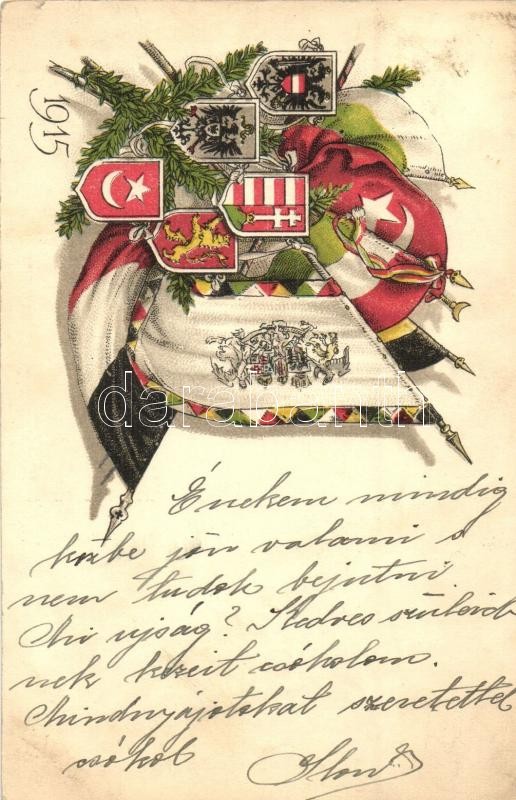 1915
darabanth
Énekem mindig
közbe jön valami s
nem tudok bejutni
Mi ujság? Kedves szüleid
nek kezeit csókolom.
Mindnyájotokat szeretettel
csókol